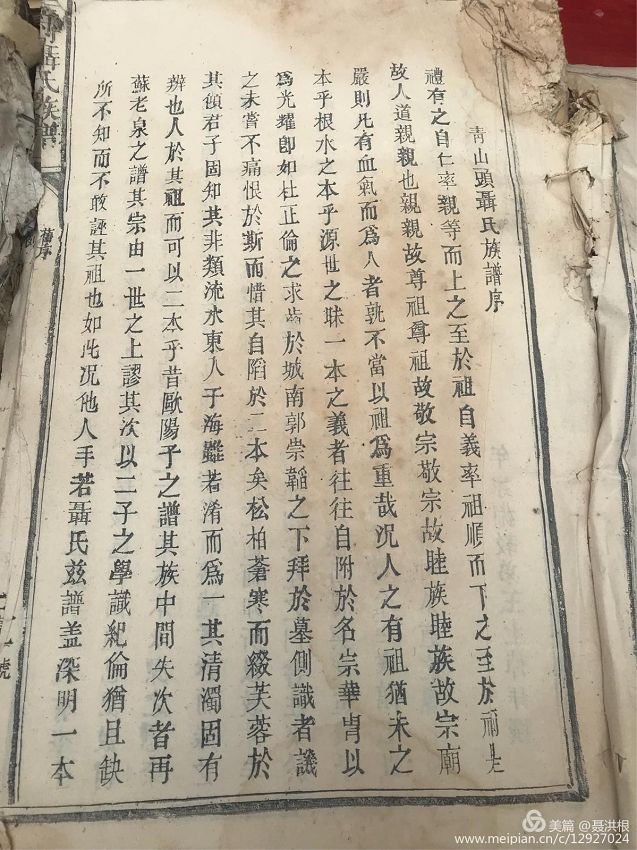 青山頭聶氏族譜序
禮有之自仁率親等而上之至於祖自義率祖順而下之至於禰是
故人道親親也親親故尊祖尊祖故敬宗敬宗故睦族睦族故宗廟
嚴則凡有血氣而爲人者孰不當以祖爲重哉況人之有祖猶未之
本乎根水之本乎源世之昧一本之義者往往自附於名宗華胄以
爲光耀卽如杜正倫之求齒於城南郭崇韜之下拜於墓側識者譏
之未嘗不痛恨於斯而惜其自陷於二本矣松柏蒼寒而綴芙蓉於
其顛君子固知其非類流水東人于海雖若淆而爲一其清濁固有
辨也人於其祖而可以二本乎昔歐陽子之譜其族中間失次者再
蘇老泉之譜其宗由一世之上謬其次以二子之學識紀倫猶且缺
所不知而不敢誣其祖也如此况他人手若聶氏茲譜盖深明一本
聶氏族譜
舊序
號
美篇 @聂洪根
www.meipian.cn/c/12927024